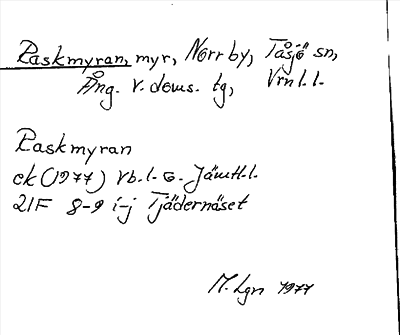 Raskmyran, myr, Norrby, Tåsjö sn,
Ång. v. doms. tg, Vrnl. l.
Raskmyran
ek (1977) Vb. l. o. Jämtl. l.
21F 8-9 i-j Tjädernäset
M. Lgn 1977